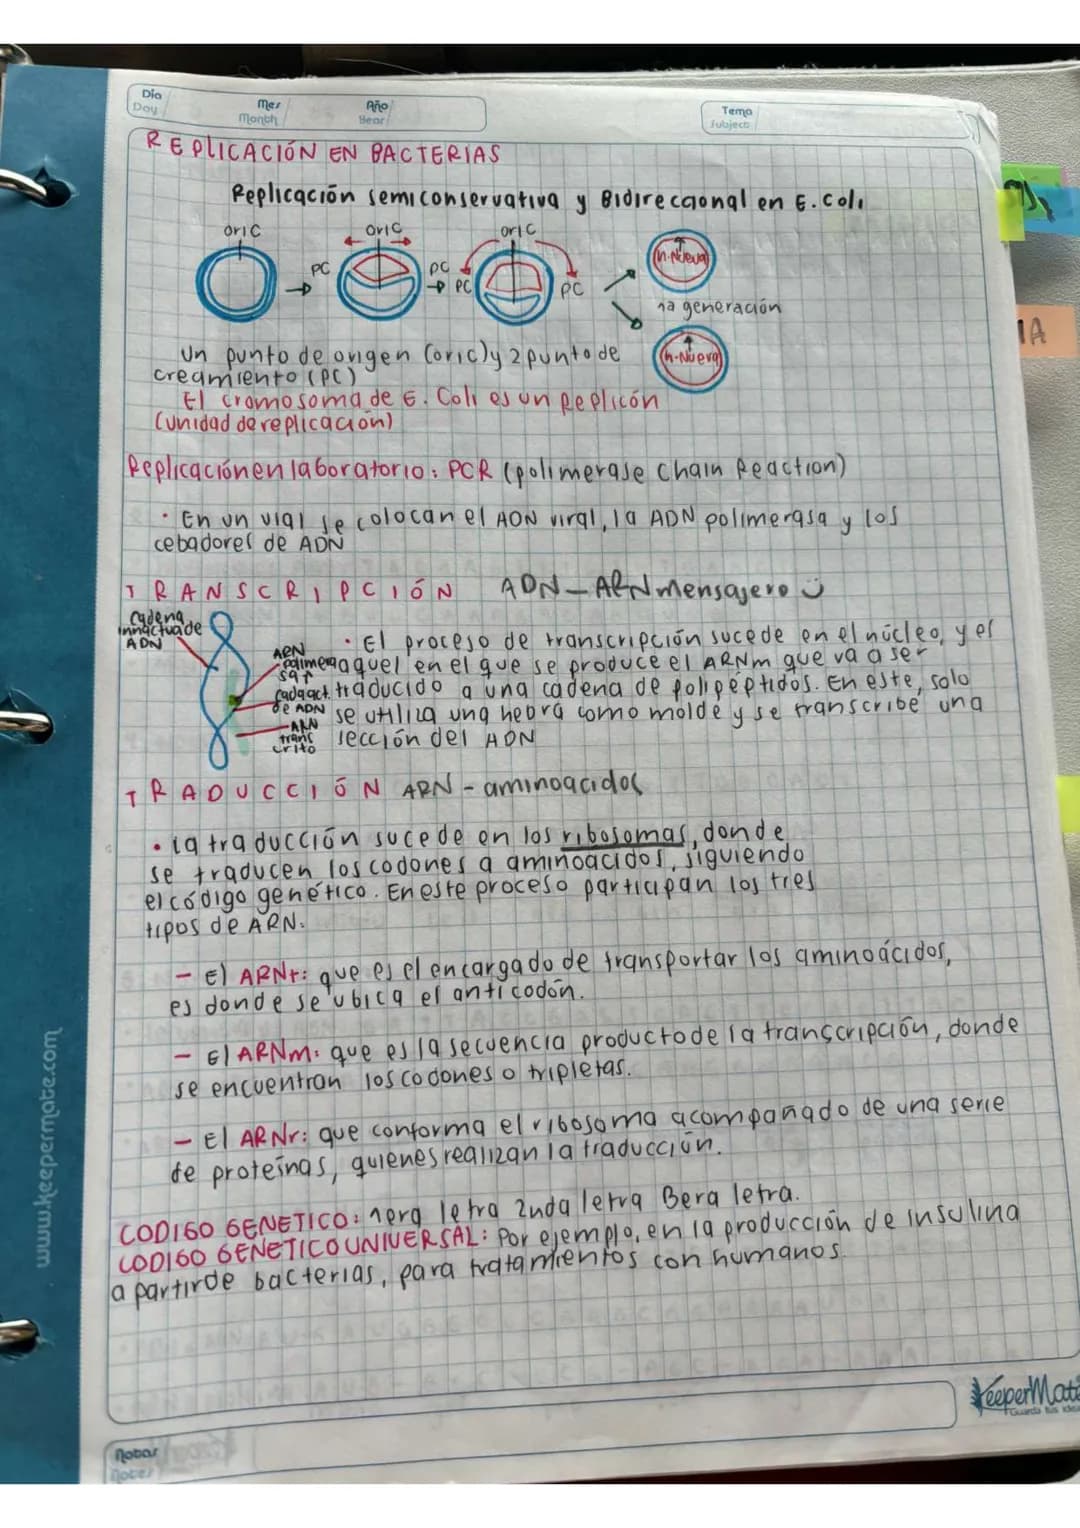 Día
Day
Mes
Month
Año
Year
Tema
Subject
REPLICACIÓN EN BACTERIAS
Replicación semiconservativa y Bidireccional en E. Coli
oric
oric
oric
PC
PC
PC
PC
h-Nueva
1a generación
h-Nueva
Un punto de origen (oric) y 2 punto de
creamiento (PC)
El cromosoma de E. Coli es un Replicón
(unidad de replicación)
Replicación en laboratorio: PCR (polimerase Chain Reaction)
· En un vial se colocan el ADN viral, la ADN polimerasa y los
cebadores de ADN
TRANSCRIPCIÓN ADN - ARN mensajero
Cadena
innactua de
ADN
ARN
Cada act.
de ADN
ARN
trans
crito
· El proceso de transcripción sucede en el núcleo, y es
aquel en el que se produce el ARNm que va a ser
traducido a una cadena de polipéptidos. En este, solo
se utiliza una hebra como molde y se transcribe una
sección del ADN
TRADUCCIÓN ARN - aminoacidos
· la traducción sucede en los ribosomas, donde
se traducen los codones a aminoácidos, siguiendo
el código genético. En este proceso participan los tres
tipos de ARN.
- El ARNt: que es el encargado de transportar los aminoácidos,
es donde se ubica el anticodón.
- El ARNm: que es la secuencia producto de la transcripción, donde
se encuentran los codones o tripletas.
- El ARNr: que conforma el ribosoma acompañado de una serie
de proteínas, quienes realizan la traducción.
CODIGO GENETICO: 1era letra 2unda letra 3era letra.
CODIGO GENETICO UNIVERSAL: Por ejemplo, en la producción de insulina
a partir de bacterias, para tratamientos con humanos.
Notas
Notes
KeeperMate
Guarda tus ideas
www.keepermate.com